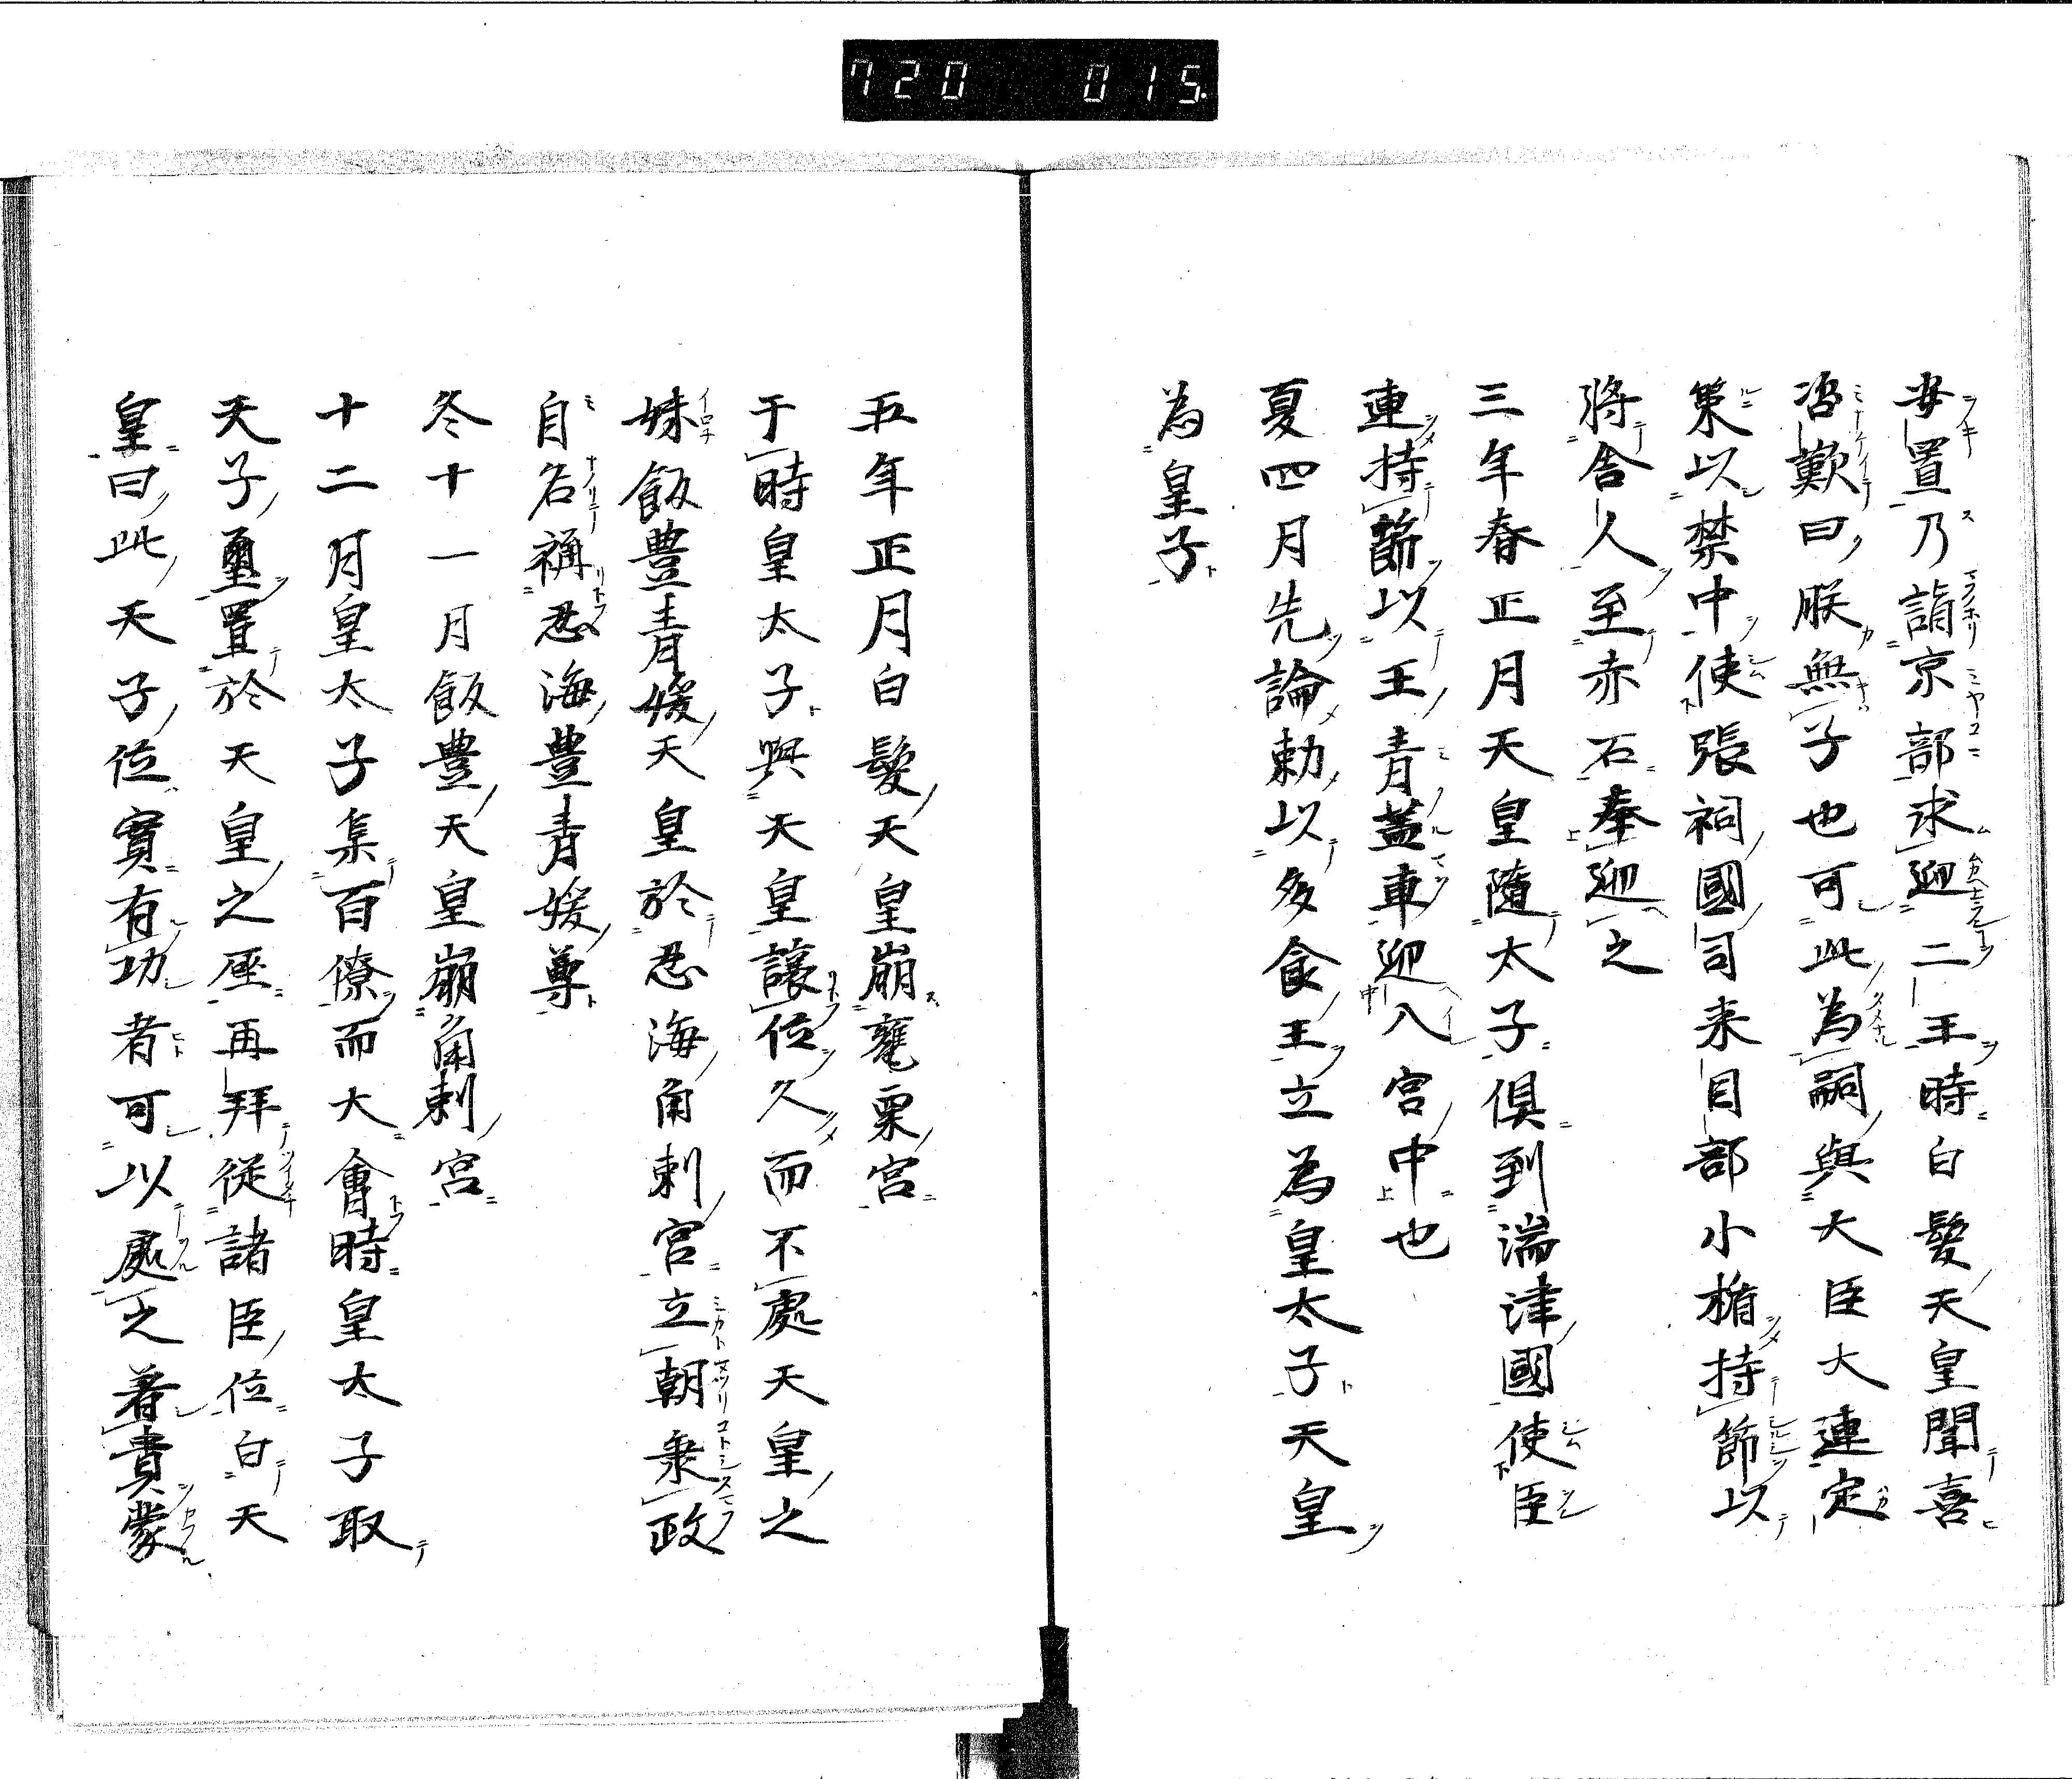 720 015
安置乃詣京部求迎二王時白髮天皇聞喜
咨歎曰朕無子也可此為嗣與大臣大連定
策以禁中使張祠國司来目部小楯持節以
將舎人至赤石奉迎之
三年春正月天皇隨太子倶到湍津國使臣
連持節以王青蓋車迎入宮中也
夏四月先論勅以多食王立為皇太子天皇
為皇子
五年正月白髮天皇崩甕栗宮
于時皇太子與天皇讓位久而不處天皇之
妹飯豊青媛天皇於忍海角刺宮立朝秉政
自名稱忍海豊青媛尊
冬十一月飯豊天皇崩角刺宮
十二月皇太子集百僚而大會時皇太子取
天子璽置於天皇之座再拜從諸臣位白天
皇曰此天子位實有功者可以處之着貴蒙